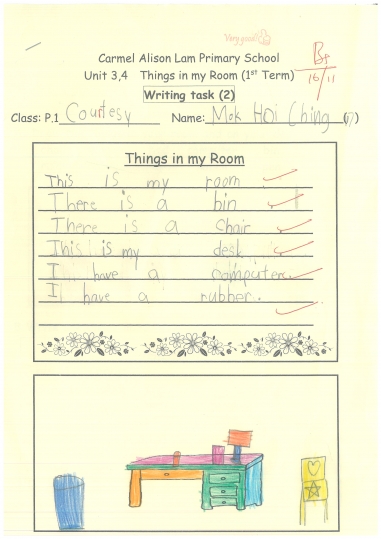 Very good!
Carmel Alison Lam Primary School
Unit 3,4 Things in my Room (1st Term)
16/11
Writing task (2)
Class: P.1 Courtesy Name: Mok Hoi Ching (17)
Things in my Room
This is my room
There is a bin
There is a chair
This is my desk
I have a computer.
I have a rubber.